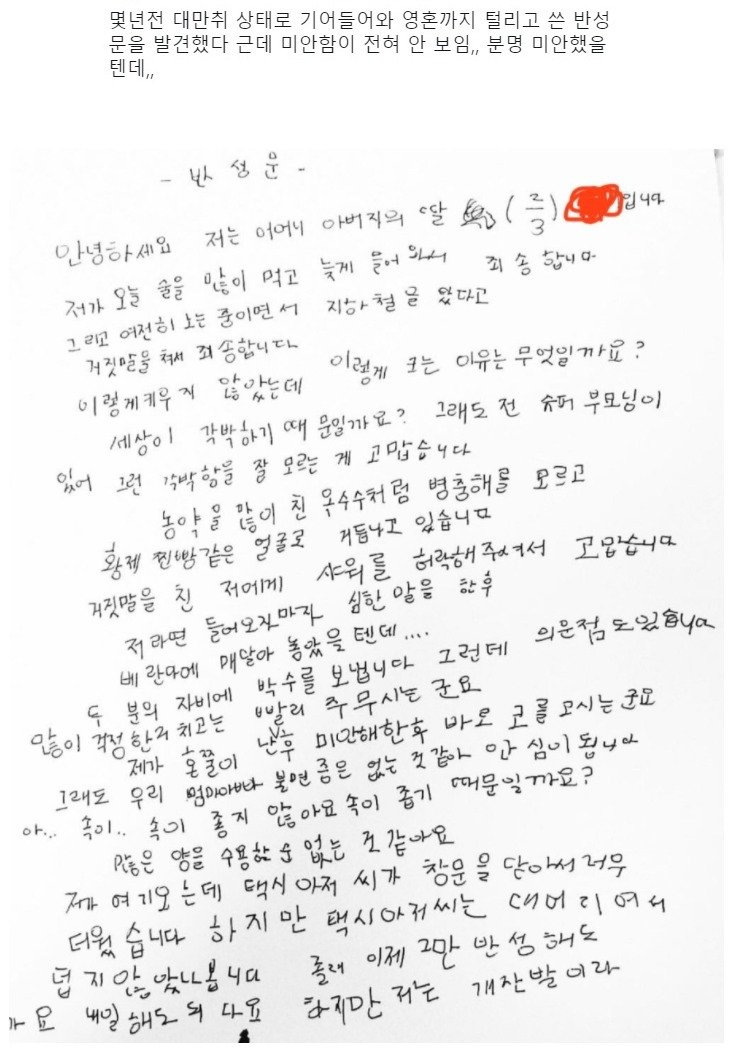 몇년전 대만취 상태로 기어들어와 영혼까지 털리고 쓴 반성
문을 발견했다 근데 미안함이 전혀 안 보임,, 분명 미안했을
텐데,,
- 반성문 -
안녕하세요 저는 어머니 아버지의 딸 (2/3) 입니다
저가 오늘 술을 많이 먹고 늦게 들어와서 죄송합니다
그리고 여전히 노는 중이면서 지하철을 탔다고
거짓말을 쳐서 죄송합니다
이렇게키우지 않았는데 이렇게 크는 이유는 무엇일까요?
세상이 각박하기 때문일까요? 그래도 전 슈퍼 부모님이
있어 그런 각박함을 잘 모르는 게 고맙습니다
농약을 많이 친 옥수수처럼 병충해를 모르고
황제 찐빵같은 얼굴로 거듭나고 있습니다
거짓말을 친 저에게 샤워를 허락해주셔서 고맙습니다
저라면 들어오자마자 심한 말을 한후
베란다에 매달아 놓았을텐데....
두 분의 자비에 박수를 보냅니다 그런데 의문점도있습니다
많이 걱정한거 치고는 빨리 주무시는 군요
제가 혼쭐이 난후 미안해한후 바로 코를 고시는군요
그래도 우리 엄마아빠 불면증은 없는 것같아 안심이 됩니다
아... 속이.. 속이 좋지 않아요 속이 좁기 때문일까요?
많은 양을 수용할순 없는 것 같아요
제가 여기오는데 택시아저씨가 창문을 닫아서 너무
더웠습니다 하지만 택시아저씨는 대머리여서
덥지않았나봅니다 졸려 이제 그만 반성해도
요 내일 해도 되 다요 하지만 저는 개잔발이라